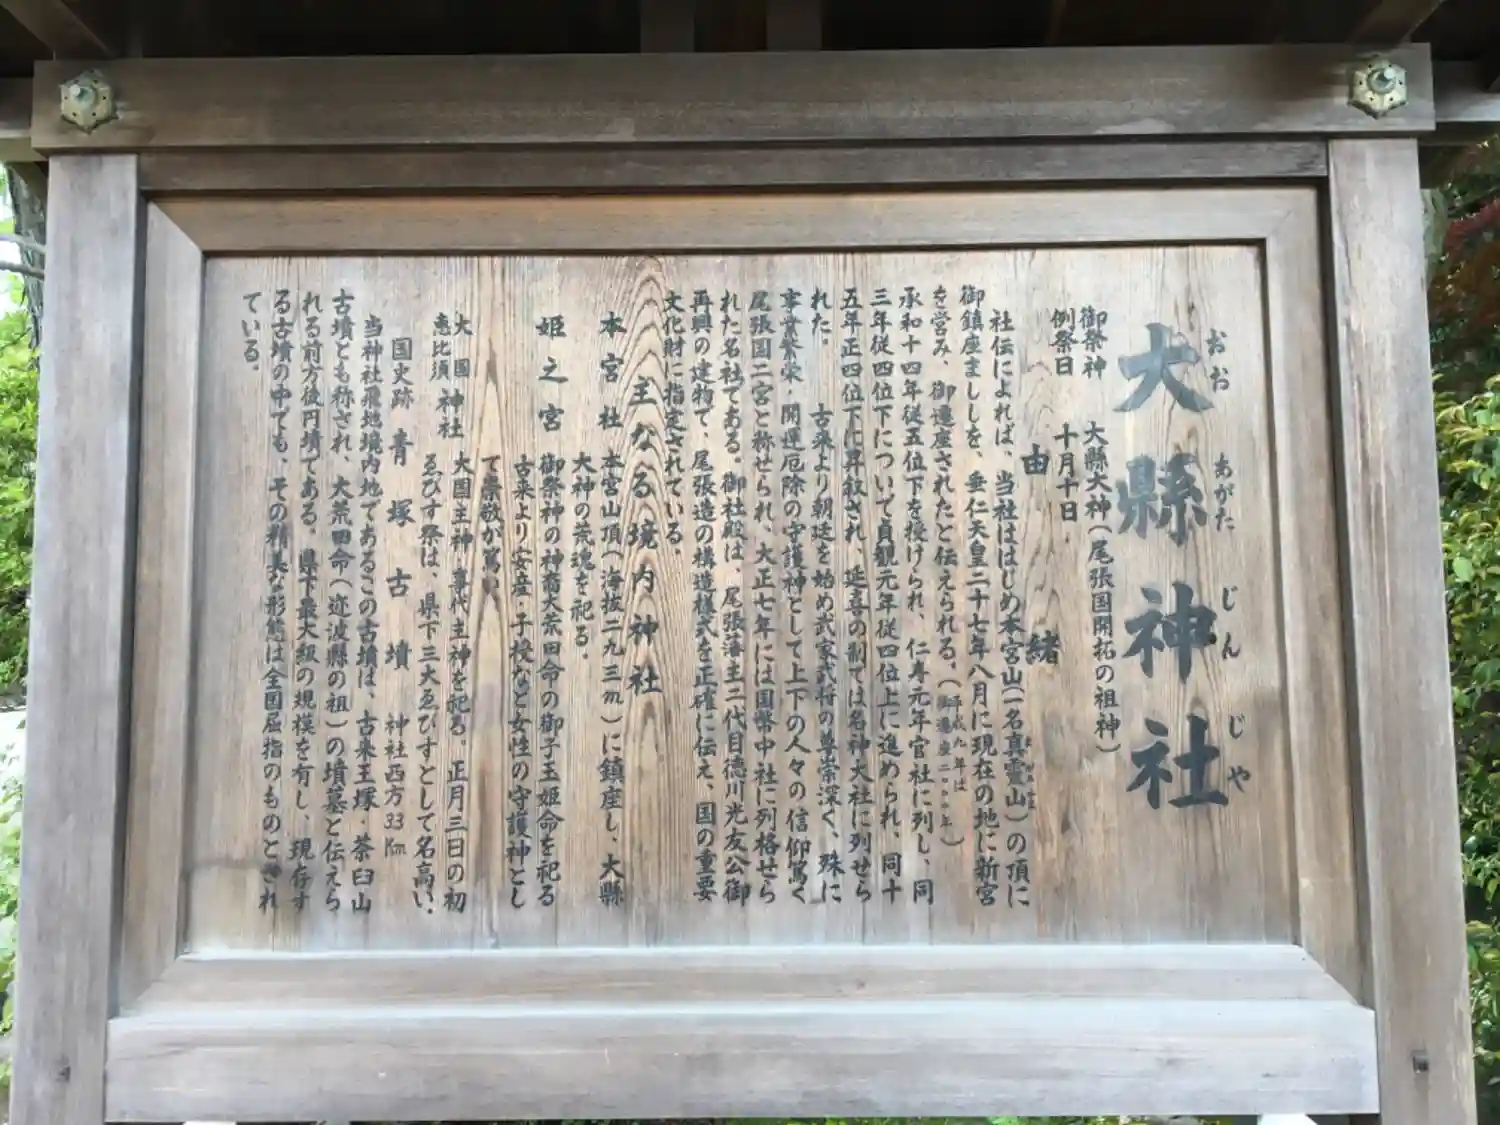 大縣神社
おお あがた じん じや
御祭神 大縣大神(尾張国開拓の祖神)
例祭日 十月十日
由緒
社伝によれば、当社ははじめ本宮山(一名真霊山)の頂に
御鎮座ましましを、垂仁天皇二十七年八月に現在の地に新宮
を営み、御遷座されたと伝えられる。(平成九年は御遷座二〇〇〇年)
承和十四年従五位下を授けられ、仁寿元年官社に列し、同
三年従四位下についで貞観元年従四位上に進められ、同十
五年正四位下に昇叙され、延喜の制では名神大社に列せら
れた。 古来より朝廷を始め武家武将の尊崇深く、殊に
事業繁栄・開運厄除の守護神として上下の人々の信仰篤く
尾張国二宮と称せられ、大正七年には国幣中社に列格せら
れた名社である。御社殿は、尾張藩主二代目徳川光友公御
再興の建物で、尾張造の構造様式を正確に伝え、国の重要
文化財に指定されている。
主なる境内神社
本宮社 本宮山頂(海抜二九三m)に鎮座し、大縣
大神の荒魂を祀る。
姫之宮 御祭神の神裔大荒田命の御子玉姫命を祀る
古来より安産・子授など女性の守護神とし
て崇敬が篤い
大国
恵比須 神社 大国主神 事代主神を祀る。正月三日の初
ゑびす祭は、県下三大ゑびすとして名高い。
国史跡 青塚古墳 神社西方33Km
当神社飛地境内地であるこの古墳は、古来王塚・茶臼山
古墳とも称され、大荒田命(迩波縣の祖)の墳墓と伝えら
れる前方後円墳である。県下最大級の規模を有し、現存す
る古墳の中でも、その精美な形態は全国屈指のものとされ
ている。